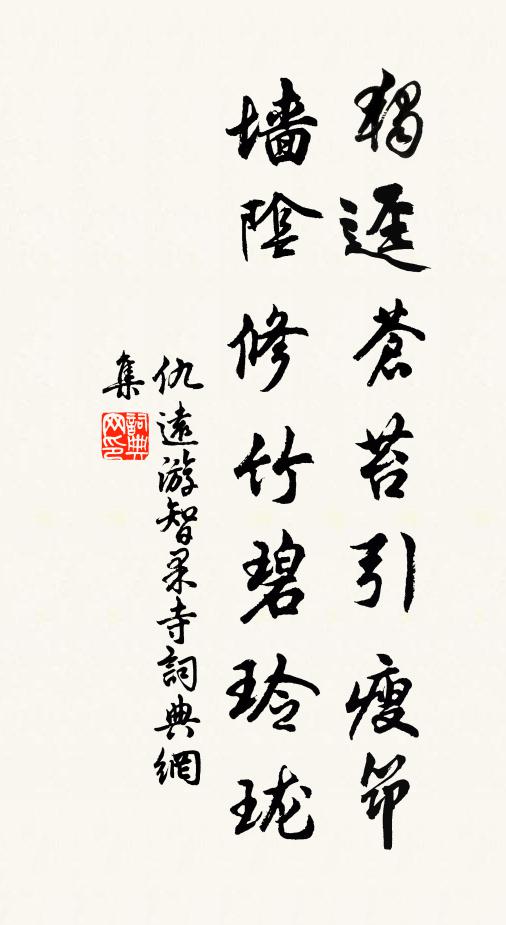 獨逕蒼苔引瘦筇
墙陰修竹碧玲珑
仇遠游智果寺詞典網
集
詞典
网印